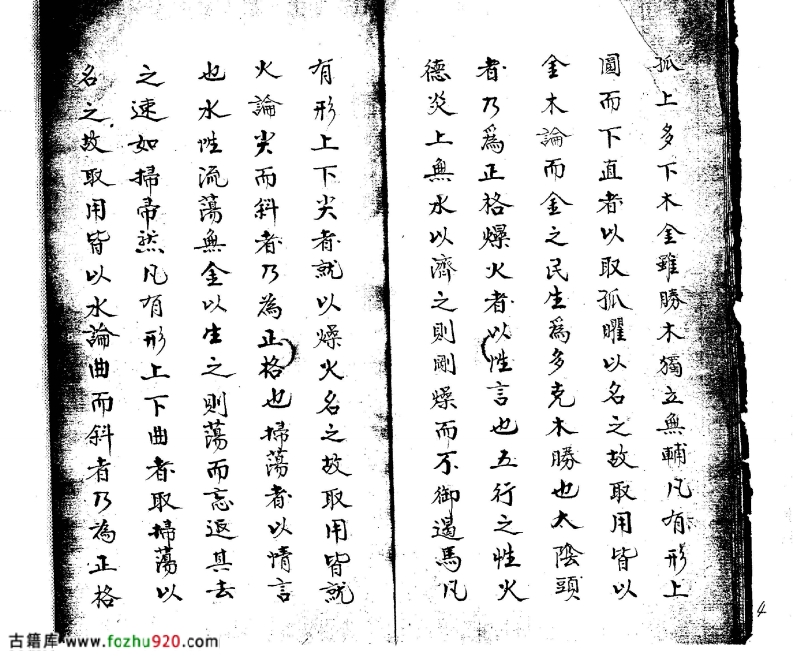 孤上多下木金雖勝木獨立無輔凡有形上
圓而下直者以取孤曜以名之故取用皆以
金木論而金之民生爲多克木勝也太陰頭
者乃爲正格燥火者以性言也五行之性火
德炎上無水以濟之則剛燥而不御遏焉凡
有形上下尖者就以燥火名之故取用皆就
火論尖而斜者乃為正格也掃蕩者以情言
也水性流蕩無金以生之則蕩而忘返其去
之速如掃帚然凡有形上下曲者取掃蕩以
名之故取用皆以水論曲而斜者乃為正格
4
古籍库 www.fozhu920.com